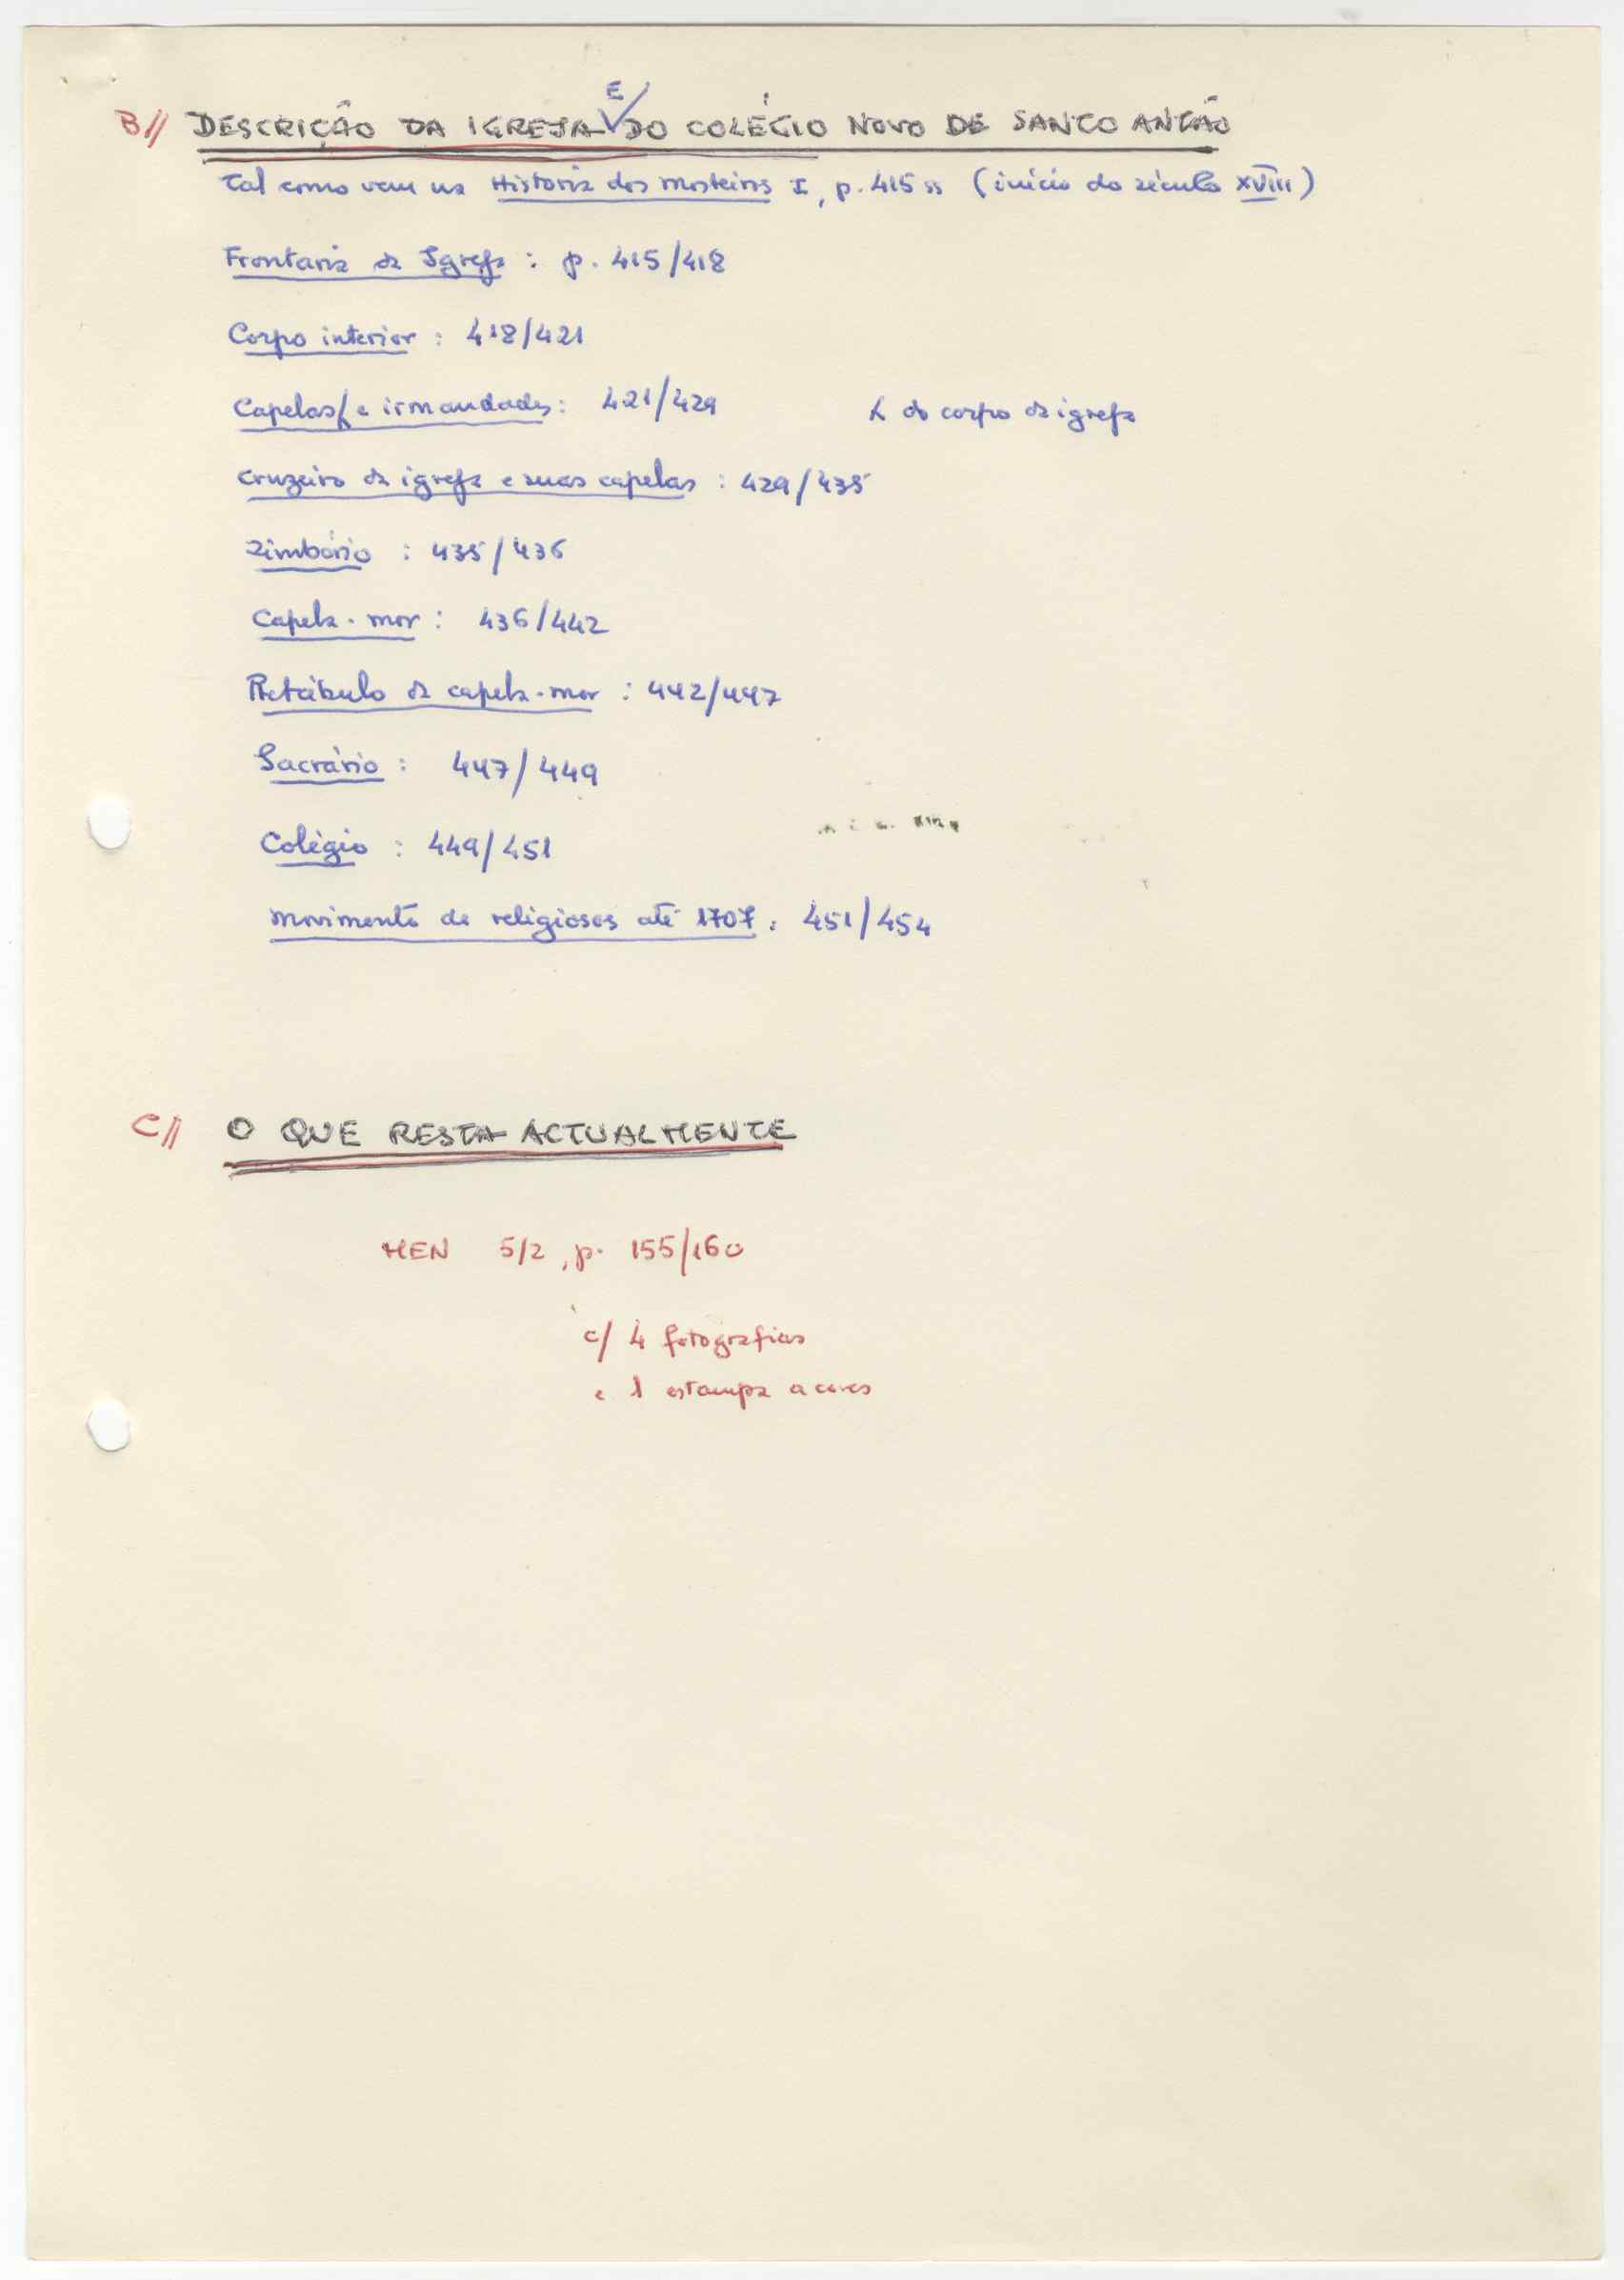 B// DESCRIÇÃO DA IGREJA E DO COLÉGIO NOVO DE SANTO ANTÃO
Tal como vem na Historia dos mosteiros I, p. 415 ss (início do século XVIII)
Frontaria da Igreja : p. 415/418
Corpo interior : 418/421
Capelas e irmandades : 421/429 do corpo da igreja
Cruzeiro da igreja e suas capelas : 429/435
Zimbório : 435/436
Capela-mor : 436/442
Retábulo da capela-mor : 442/447
Sacrário : 447/449
Colégio : 449/451
Movimento de religiosos até 1707 : 451/454
C// O QUE RESTA ACTUALMENTE
MEN 5/2, p. 155/160
c/ 4 fotografias
e 1 estampa a cores